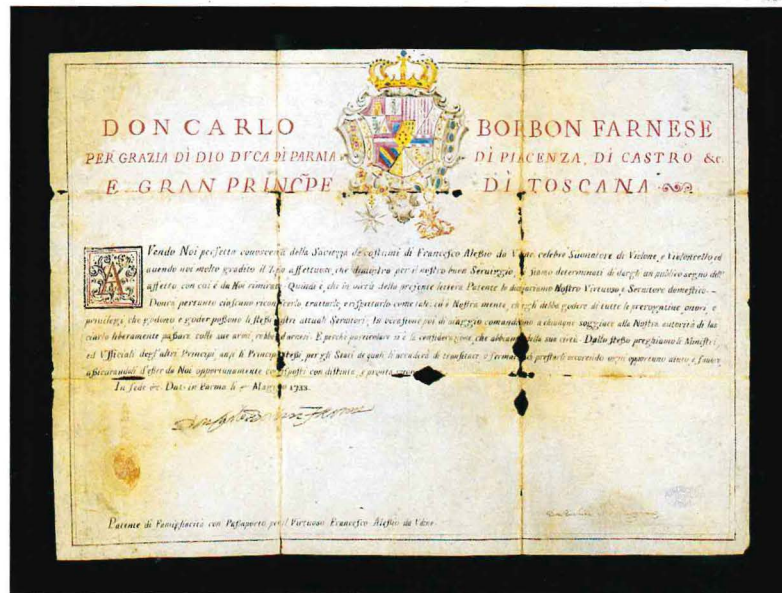 DON CARLO BORBON FARNESE
PER GRAZIA DI DIO DVCA DI PARMA DI PIACENZA, DI CASTRO &c.
E GRAN PRINCIPE DI TOSCANA
AVendo Noi perfetta conoscenza della Saviezza de costumi di Francesco Alessio da Vdine, celebre Suonatore di Violone, e Violoncello ed
auendo noi molto gradito il Zelo affettuoso, che dimostra per il nostro buon Seruiggio, ci siamo determinati di dargli un publico segno dell'
affetto, con cui è da Noi rimirato. Quindi è, che in virtù della presente lettera Patente lo dichiariamo Nostro Virtuoso, e Seruitore domestico.—
Dourà pertanto ciascuno riconoscerlo, trattarlo, e rispettarlo come tale; ed è Nostra mente, ch'egli debba godere di tutte le prerogatiue, onori, e
priuilegi, che godono, e goder possono li stessi nostri attuali Seruitori; In occasione poi di uiaggio comandiamo a chiunque soggiace alla Nostra autorità di las
ciarlo liberamente passare colle sue armi, robbe, ed arnesi. E perchè particolare si è la considerazione, che abbiamo della sua Dallo stesso preghiamo li Ministri,
ed Ufficiali degl'altri Principi, anzi li Principi stessi, per gli Stati de quali li accaderà di transitare, e fermarsi, a prestarle occorrendo ogni opportuno aiuto, e fauore,
assicurandoli d'esser da Noi opportunamente corrisposti con distinta, e pronta
In fede &c. Dat: in Parma li Maggio 1733.
Patente di Famigliarità con Passaporto per il Virtuoso Francesco Alessio da Vdine.